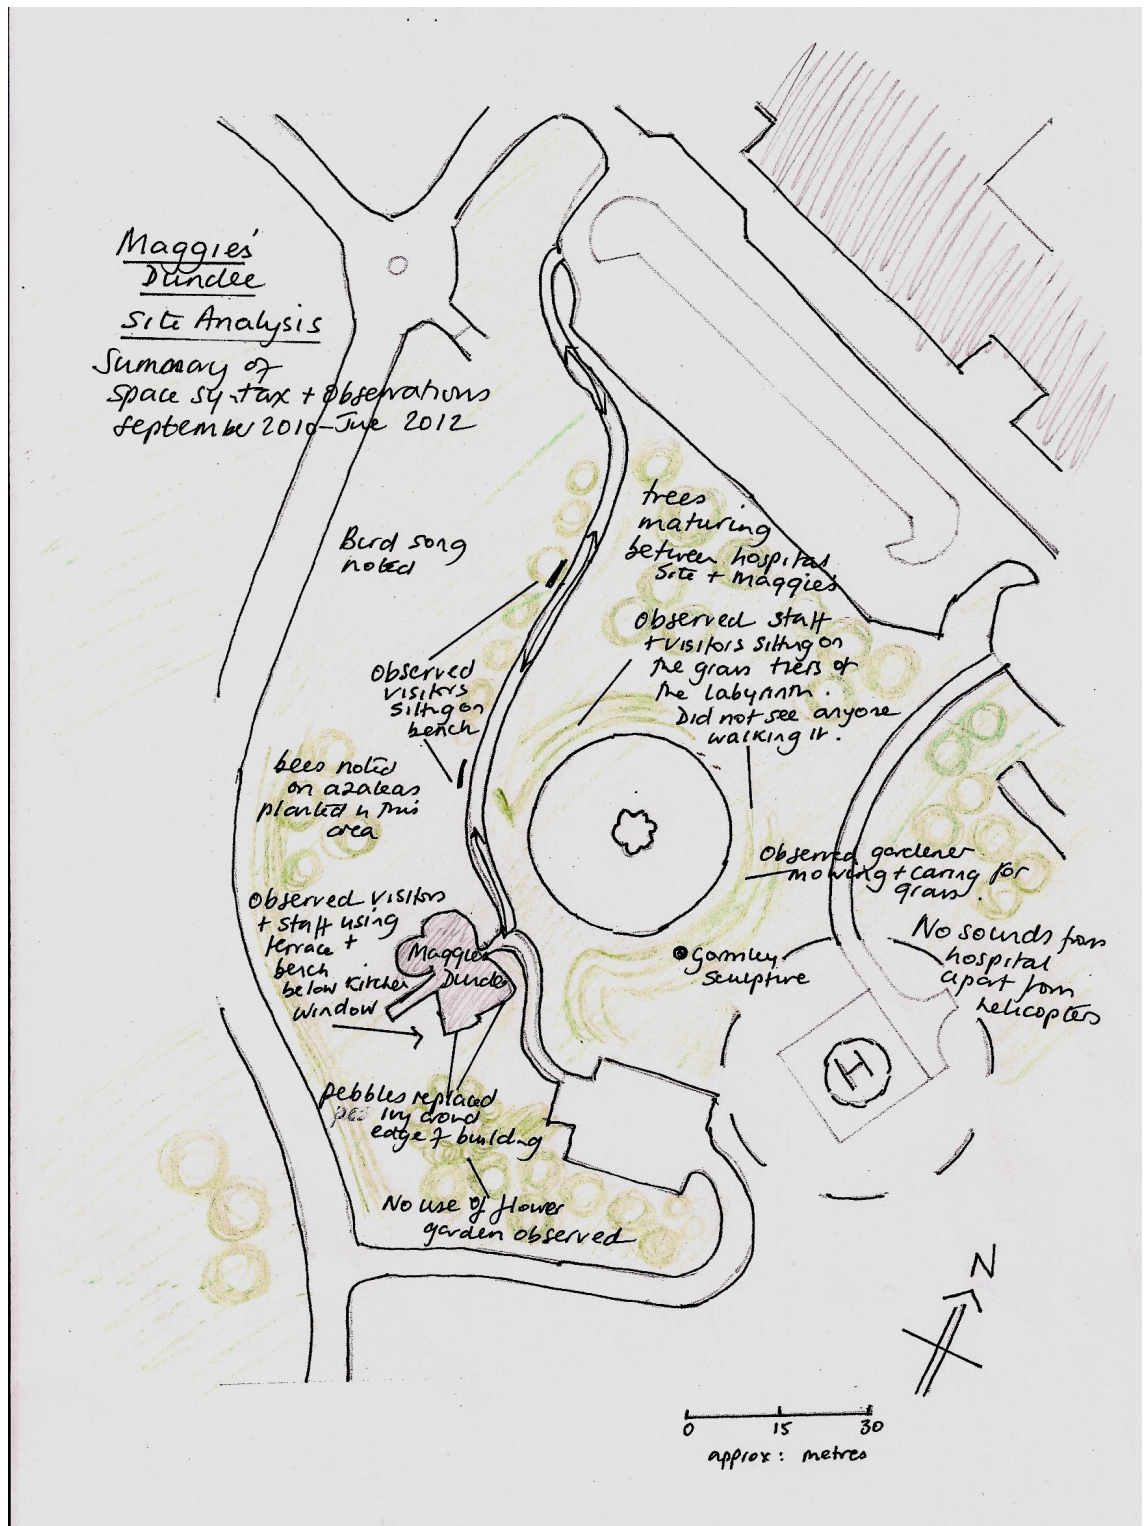 Maggies'
Dundee
Site Analysis
Summary of
space syntax + Observations
September 2010-June 2012
Bird song
noted
trees
maturing
between hospital
site + Maggies
Observed staff
+ visitors sitting on
the grass tiers of
the labyrinth.
Did not see anyone
walking it.
Observed
visitors
sitting on
bench
bees noted
on azaleas
planted in this
area
Observed gardener
mowing + caring for
grass.
Observed visitors
+ staff using
terrace +
bench
below kitchen
window
Maggies
Dundee
Gormley
Sculpture
No sounds from
hospital
apart from
helicopters
H
pebbles replaced
ivy around
edge of building
No use of flower
garden observed
N
0 15 30
approx: metres